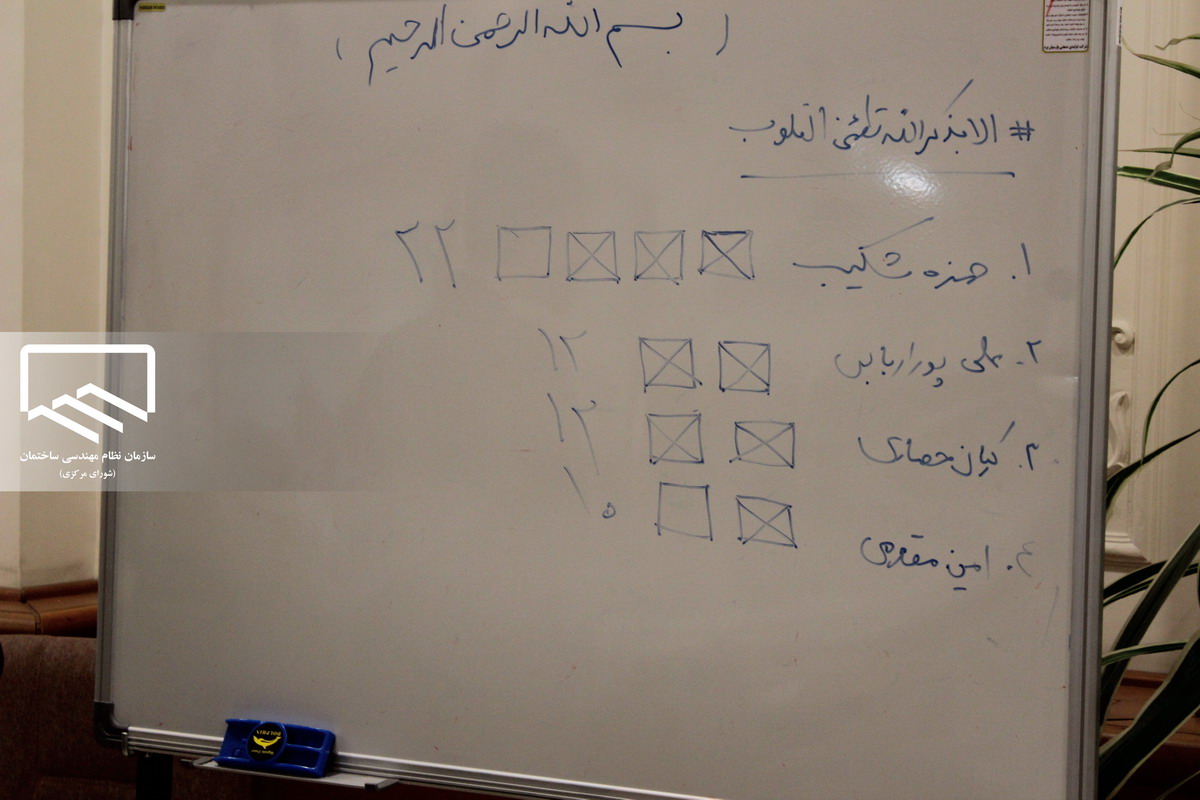 ( بسم الله الرحمن الرحیم )
# الا بذکر الله تطمئن القلوب
۱. حمزه شکیب ۲۲
۲. علی پورارباس ۱۲
۳. کیان حصاری ۱۲
۴. امین مقدمی ۱۵
سازمان نظام مهندسی ساختمان
(شورای مرکزی)